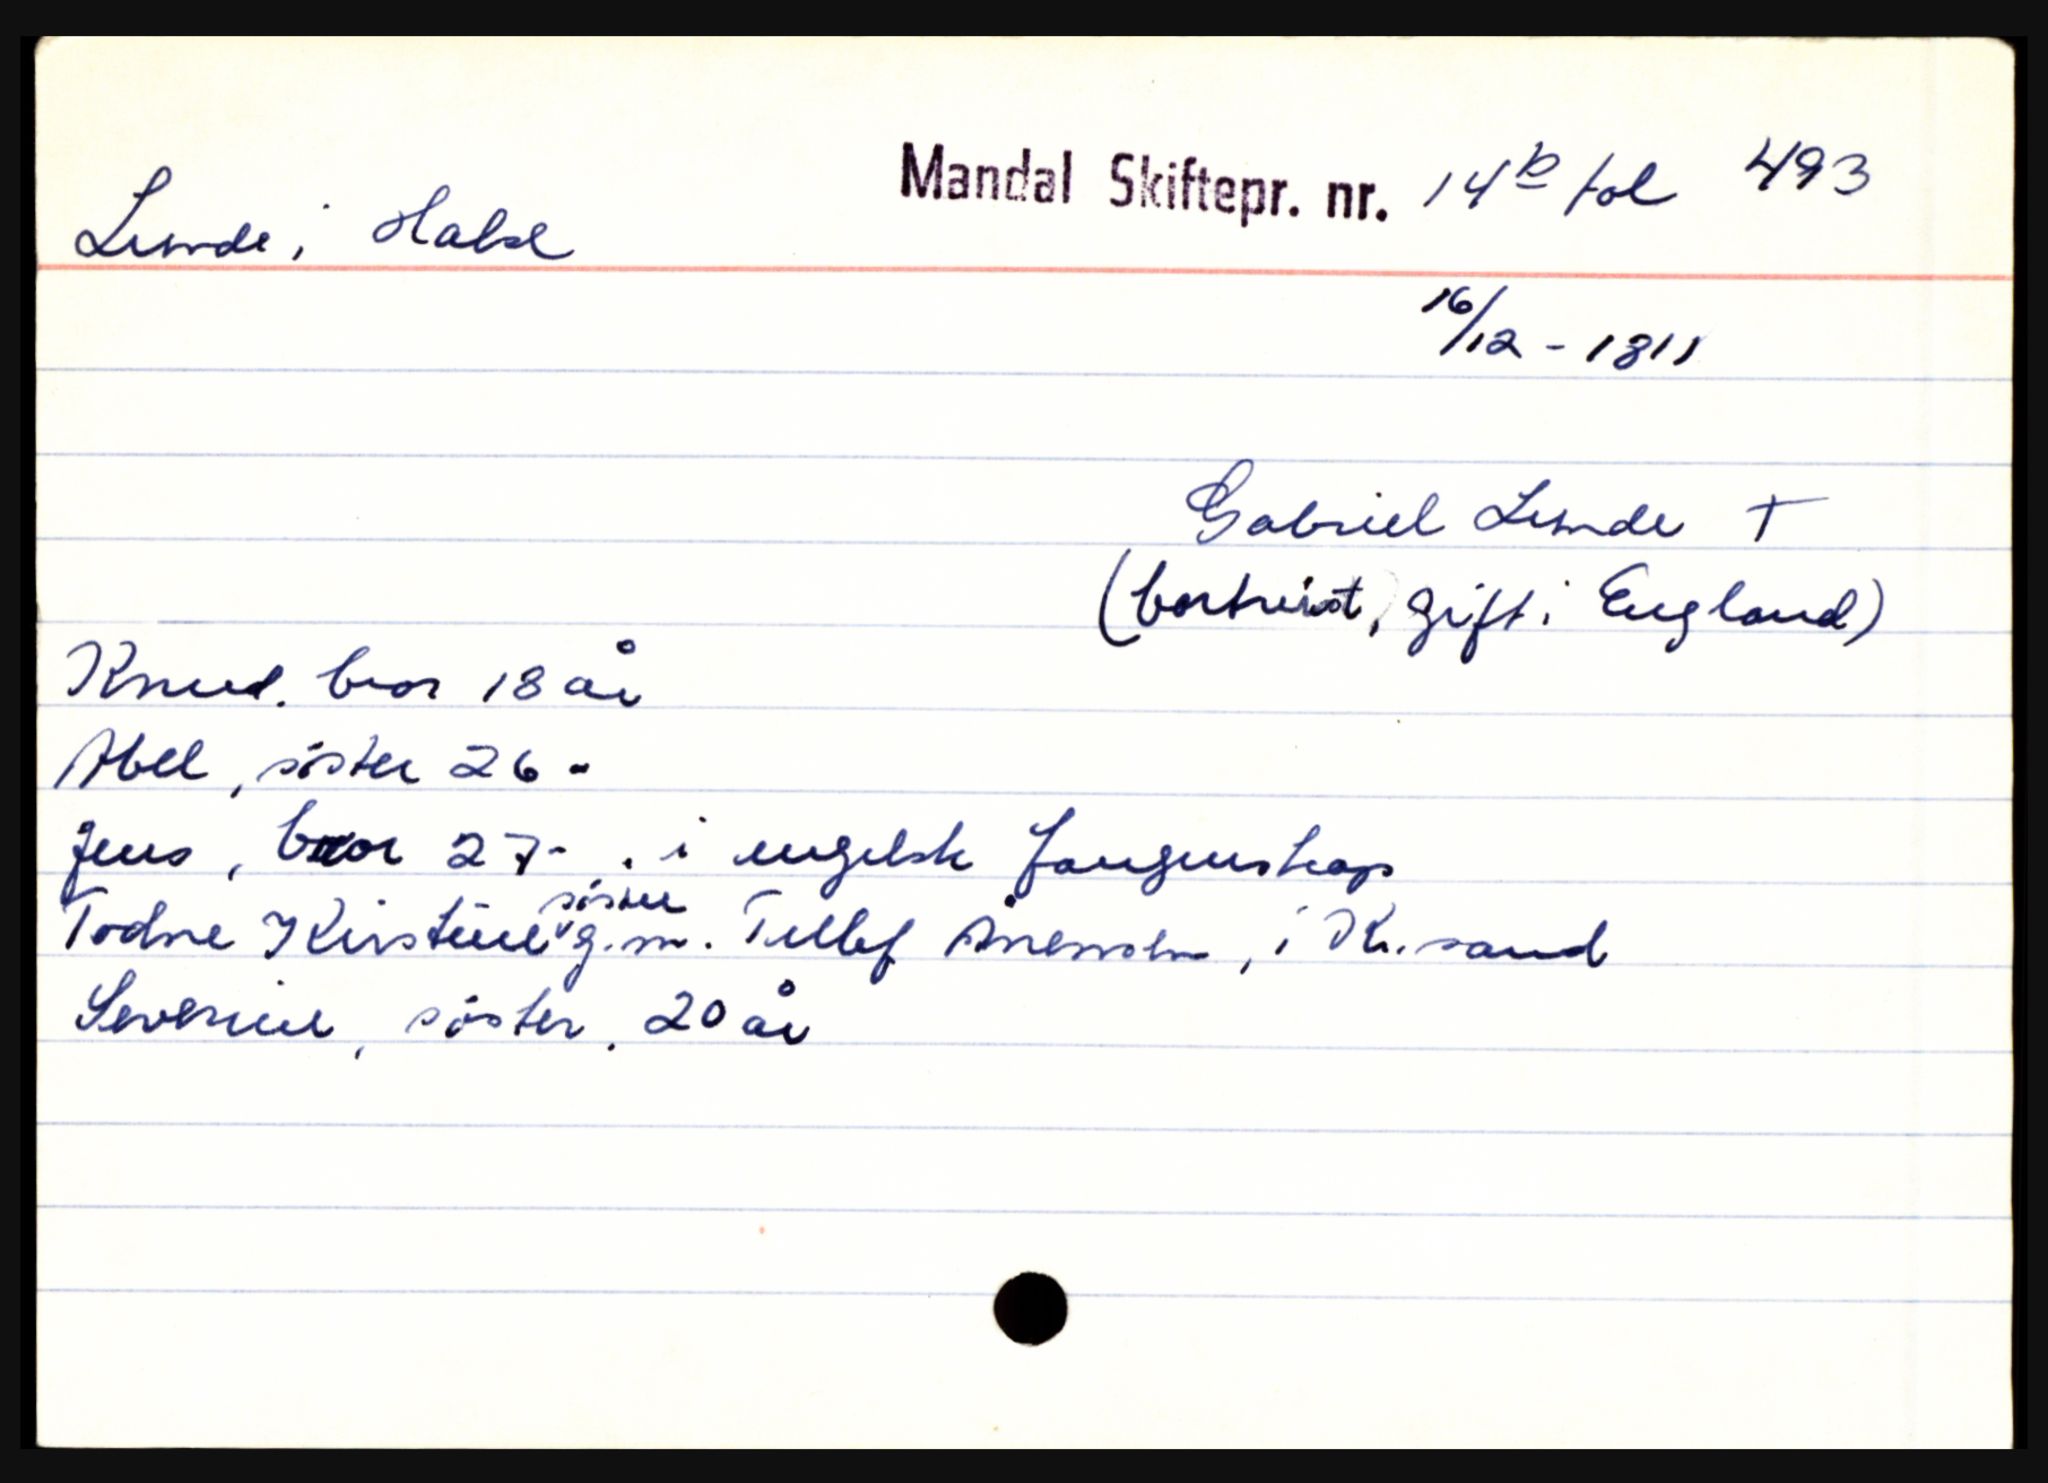 Mandal Skiftepr. nr. 14b fol 493
Lunde i Halse
16/12 - 1811
Gabriel Lunde †
(bortreist, gift i England)
Knud. bror 18 år
Abel, søster 26 -
Jens, bror 27 - . i engelsk fangenskap
Todne Kirstine søster g.m. Tellef i Kr.sand
Severine, søster, 20 år